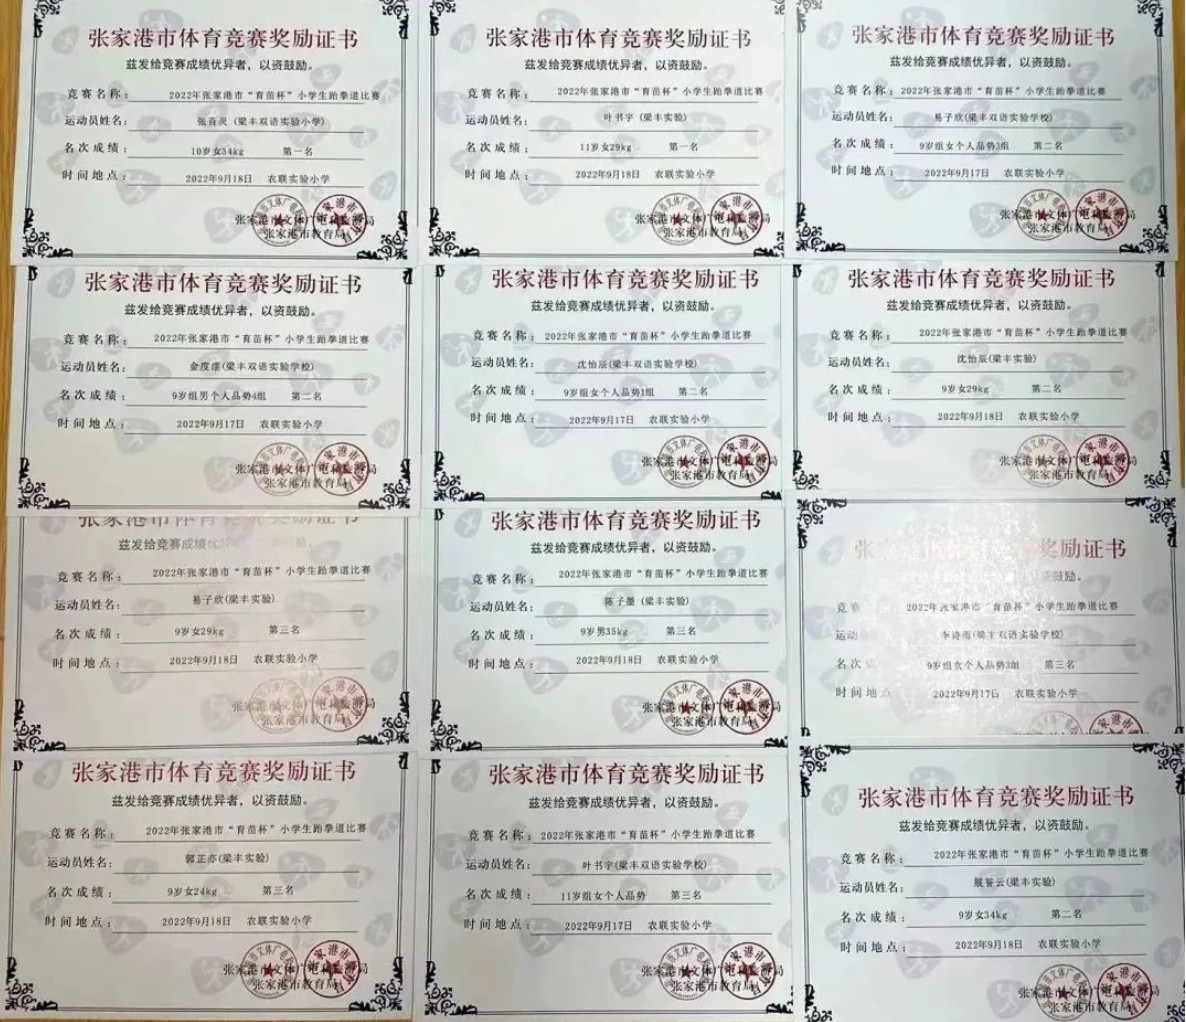 张家港市体育竞赛奖励证书
兹发给竞赛成绩优异者，以资鼓励。
竞赛名称： 2022年张家港市“育苗杯”小学生跆拳道比赛
运动员姓名： 张 灵（梁丰双语实验小学）
名次成绩： 10岁女34kg 第一名
时间地点： 2022年9月18日 农联实验小学
张家港市文体广电和旅游局
张家港市教育局
张家港市体育竞赛奖励证书
兹发给竞赛成绩优异者，以资鼓励。
竞赛名称： 2022年张家港市“育苗杯”小学生跆拳道比赛
运动员姓名： 叶书宇（梁丰实验）
名次成绩： 11岁女29kg 第一名
时间地点： 2022年9月18日 农联实验小学
张家港市文体广电和旅游局
张家港市教育局
张家港市体育竞赛奖励证书
兹发给竞赛成绩优异者，以资鼓励。
竞赛名称： 2022年张家港市“育苗杯”小学生跆拳道比赛
运动员姓名： 易子欣(梁丰双语实验学校)
名次成绩： 9岁组女个人品势3组 第二名
时间地点： 2022年9月17日 农联实验小学
张家港市文体广电和旅游局
张家港市教育局
张家港市体育竞赛奖励证书
兹发给竞赛成绩优异者，以资鼓励。
竞赛名称： 2022年张家港市“育苗杯”小学生跆拳道比赛
运动员姓名： 金度 (梁丰双语实验学校)
名次成绩： 9岁组男个人品势4组 第二名
时间地点： 2022年9月17日 农联实验小学
张家港市文体广电和旅游局
张家港市教育局
张家港市体育竞赛奖励证书
兹发给竞赛成绩优异者，以资鼓励。
竞赛名称： 2022年张家港市“育苗杯”小学生跆拳道比赛
运动员姓名： 沈怡辰(梁丰双语实验学校)
名次成绩： 9岁组女个人品势1组 第二名
时间地点： 2022年9月17日 农联实验小学
张家港市文体广电和旅游局
张家港市教育局
张家港市体育竞赛奖励证书
兹发给竞赛成绩优异者，以资鼓励。
竞赛名称： 2022年张家港市“育苗杯”小学生跆拳道比赛
运动员姓名： 沈怡辰(梁丰实验)
名次成绩： 9岁女29kg 第二名
时间地点： 2022年9月18日 农联实验小学
张家港市文体广电和旅游局
张家港市教育局
张家港市体育竞赛奖励证书
兹发给竞赛成绩优 鼓励。
竞赛名称： 2022年张家港市“育苗杯”小学生跆拳道比赛
运动员姓名： 易子欣(梁丰实验)
名次成绩： 9岁女29kg 第三名
时间地点： 2022年9月18日 农联实验小学
张家港市文体广电和旅游局
张家港市教育局
张家港市体育竞赛奖励证书
兹发给竞赛成绩优异者，以资鼓励。
竞赛名称： 2022年张家港市“育苗杯”小学生跆拳道比赛
运动员姓名： 陈子墨（梁丰实验）
名次成绩： 9岁男35kg 第三名
时间地点： 2022年9月18日 农联实验小学
张家港市文体广电和旅游局
张家港市教育局
张 奖励证书
资鼓励。
竞赛 2022年张家港市“育苗杯”小学生跆拳道比赛
运动 李诗 (梁丰双语实验学校)
名次 9岁组女个人品势3组 第三名
时间地点 2022年9月17日 农联实验小学
张家港市体育竞赛奖励证书
兹发给竞赛成绩优异者，以资鼓励。
竞赛名称： 2022年张家港市“育苗杯”小学生跆拳道比赛
运动员姓名： 郭正亦(梁丰实验)
名次成绩： 9岁女24kg 第三名
时间地点： 2022年9月18日 农联实验小学
张家港市文体广电和旅游局
张家港市教育局
张家港市体育竞赛奖励证书
兹发给竞赛成绩优异者，以资鼓励。
竞赛名称： 2022年张家港市“育苗杯”小学生跆拳道比赛
运动员姓名： 叶书宇(梁丰双语实验学校)
名次成绩： 11岁组女个人品势 第三名
时间地点： 2022年9月17日 农联实验小学
张家港市文体广电和旅游局
张家港市教育局
张家港市体育竞赛奖励证书
兹发给竞赛成绩优异者，以资鼓励。
竞赛名称： 2022年张家港市“育苗杯”小学生跆拳道比赛
运动员姓名： 展誉云(梁丰实验)
名次成绩： 9岁女34kg 第二名
时间地点： 2022年9月18日 农联实验小学
张家港市文体广电和旅游局
张家港市教育局